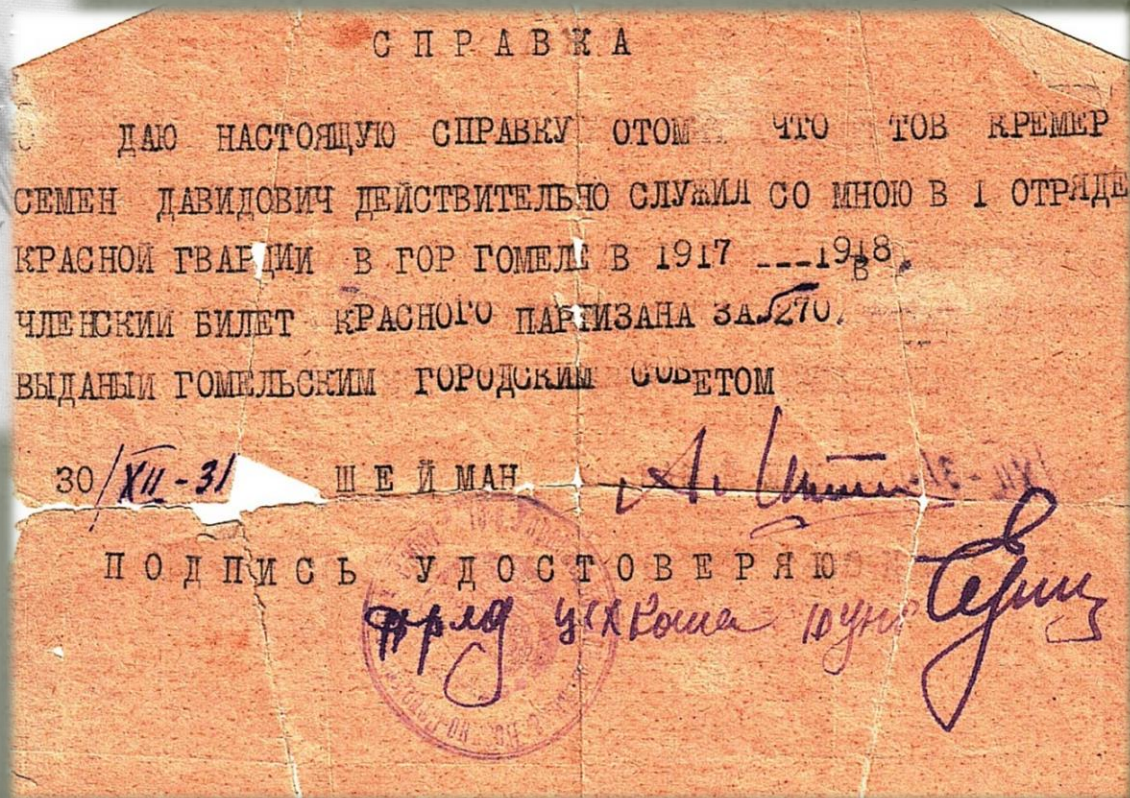 СПРАВКА
ДАЮ НАСТОЯЩУЮ СПРАВКУ ОТОМ ЧТО ТОВ КРЕМЕР
СЕМЕН ДАВИДОВИЧ ДЕЙСТВИТЕЛЬНО СЛУЖИЛ СО МНОЮ В I ОТРЯДЕ
КРАСНОЙ ГВАРДИИ В ГОР ГОМЕЛЕ В 1917 ---1918 в.
ЧЛЕНСКИЙ БИЛЕТ КРАСНОГО ПАРТИЗАНА ЗА 270
ВЫДАНЫЙ ГОМЕЛЬСКИМ ГОРОДСКИМ СОВЕТОМ
30/XII-31 ШЕЙМАН
ПОДПИСЬ УДОСТОВЕРЯЮ